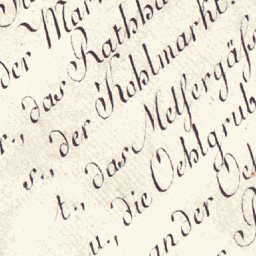 der Mar
r., das Rathha
s., der Kohlmarkt.
t., das Messergäß
u., die Oehlgrub
an der Oe